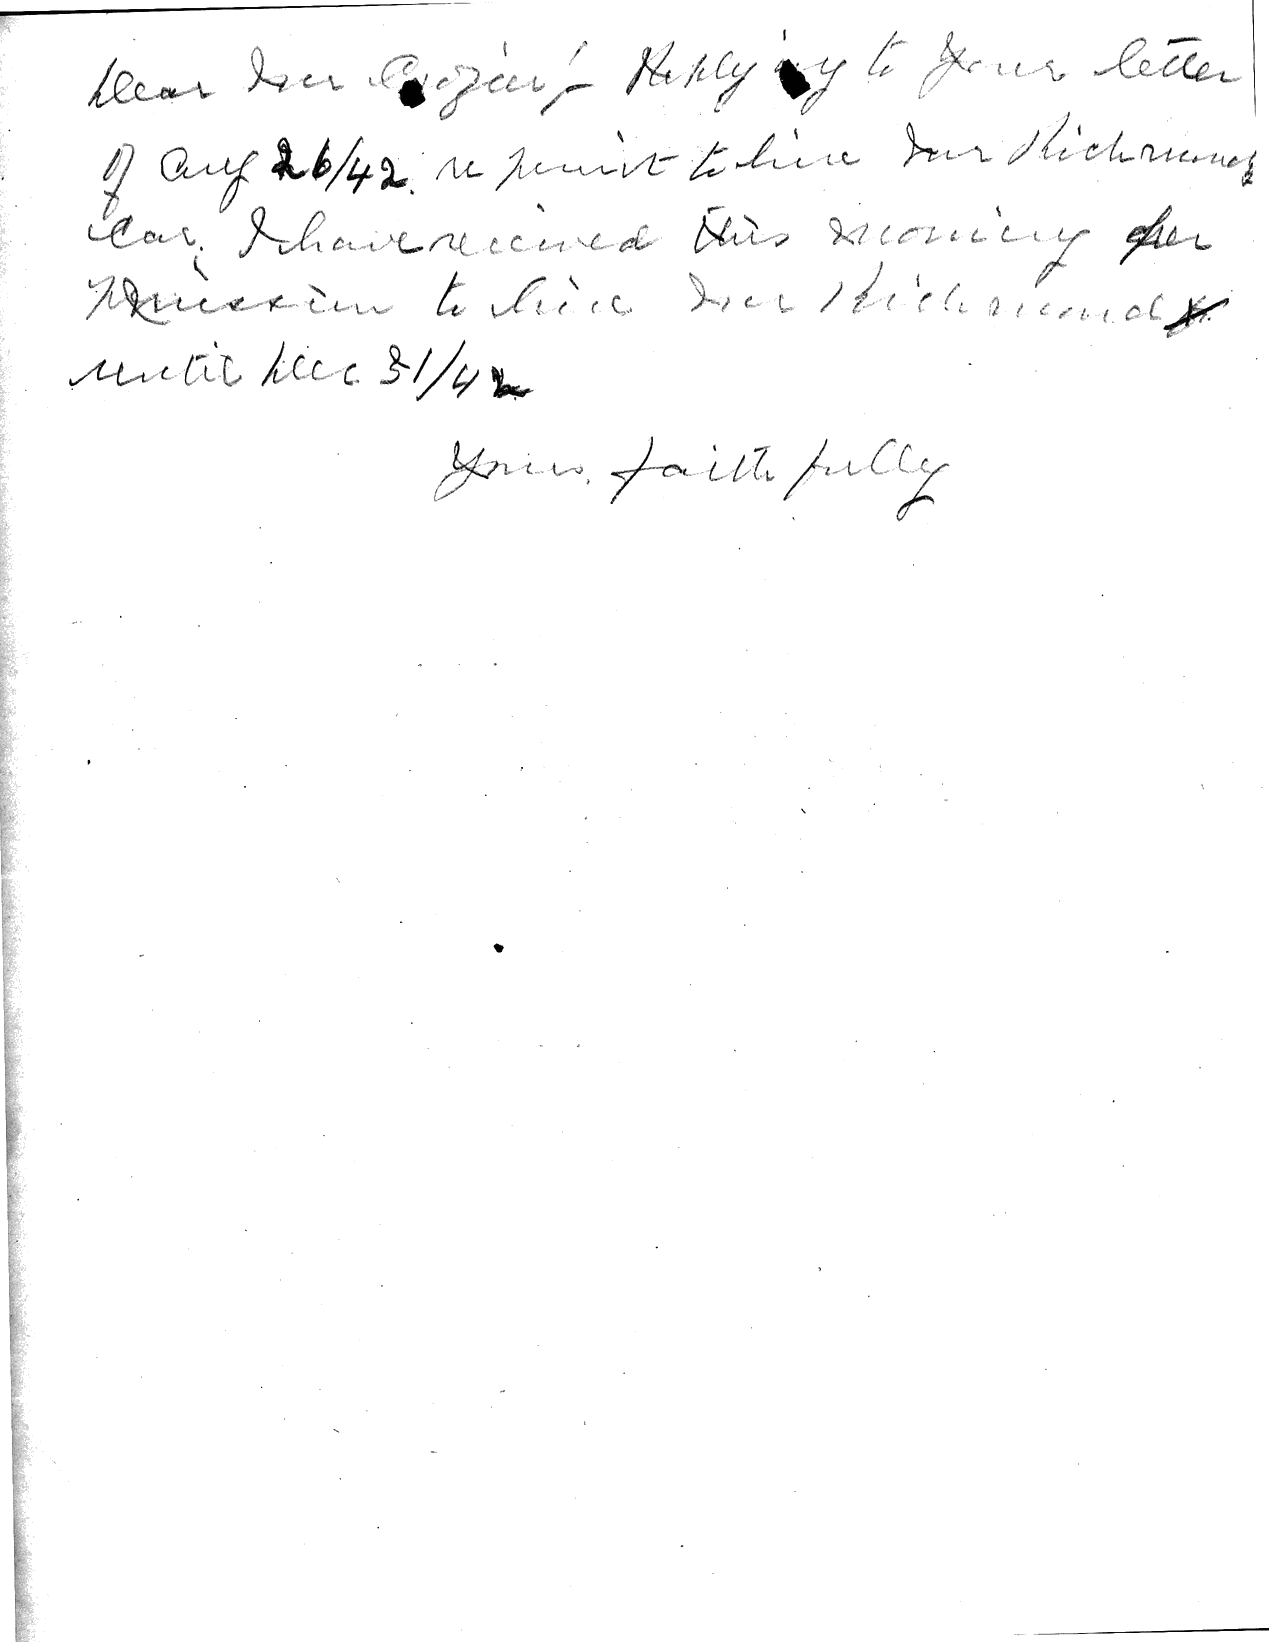 Dear Mr Crozier;- Replying to your letter
of Aug 26/42. re permit to hire Mr Richmonds
car. I have received this morning per
mission to hire Mr Richmond
until Dec 31/42
Yours faithfully